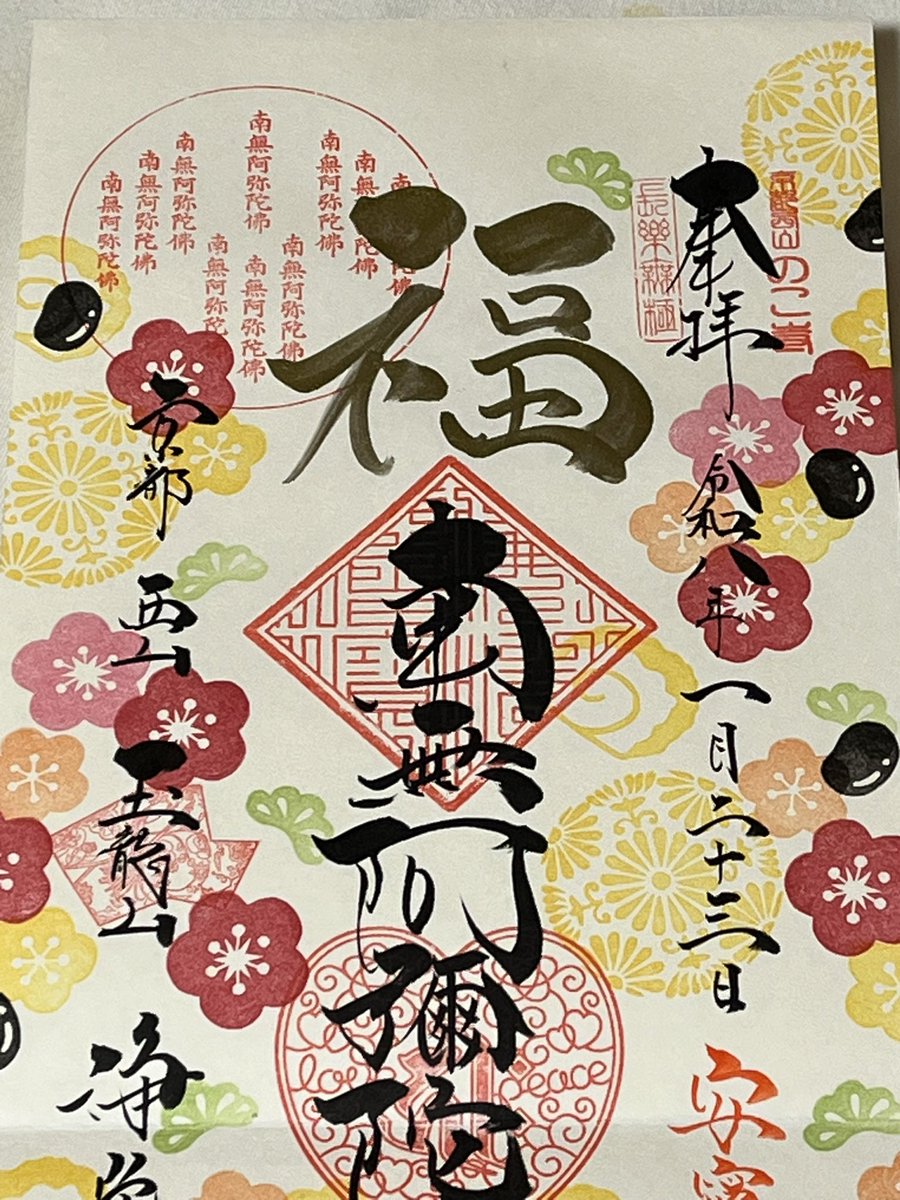 奉拝
令和八年
一月二十三日
長樂無極
福
南無阿彌陀
南無阿弥陀佛
南無阿弥陀佛
南無阿弥陀佛
南無阿弥陀佛
南無阿弥陀佛
南無阿弥陀佛
南無阿弥陀佛
南無阿弥陀佛
love
peace
京都
西山
玉龍山
浄
安寧